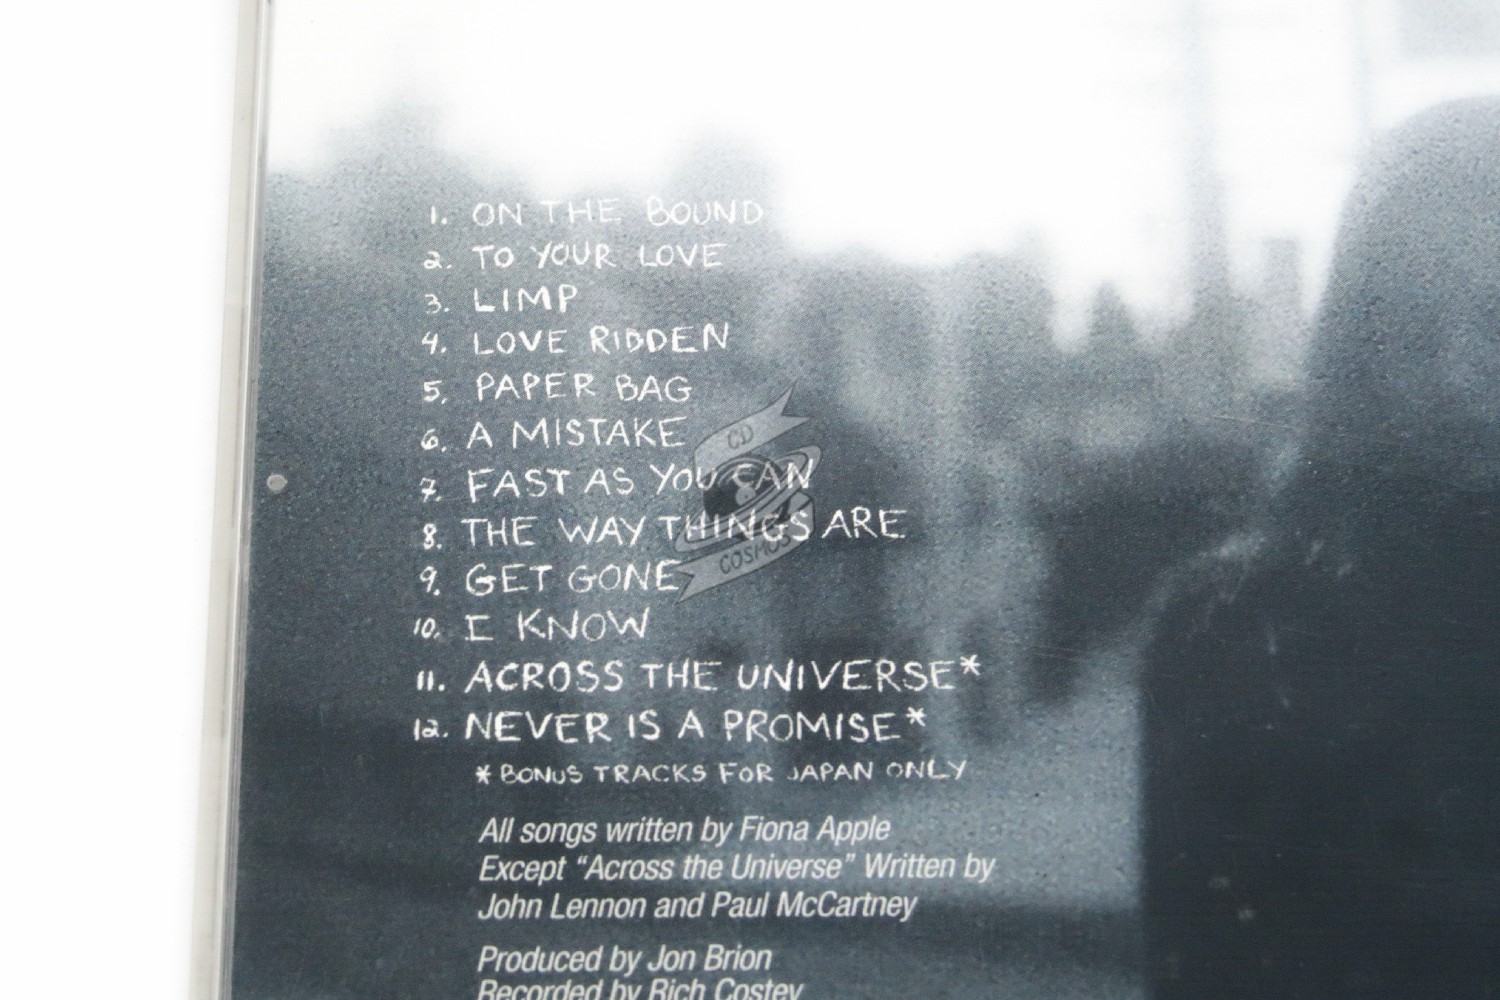 1. ON THE BOUND
2. TO YOUR LOVE
3. LIMP
4. LOVE RIDDEN
5. PAPER BAG
6. A MISTAKE
7. FAST AS YOU CAN
8. THE WAY THINGS ARE
9. GET GONE
10. I KNOW
11. ACROSS THE UNIVERSE*
12. NEVER IS A PROMISE*
* BONUS TRACKS FOR JAPAN ONLY
All songs written by Fiona Apple
Except “Across the Universe” Written by
John Lennon and Paul McCartney
Produced by Jon Brion
Recorded by Rich Costey
CD
COSMOS